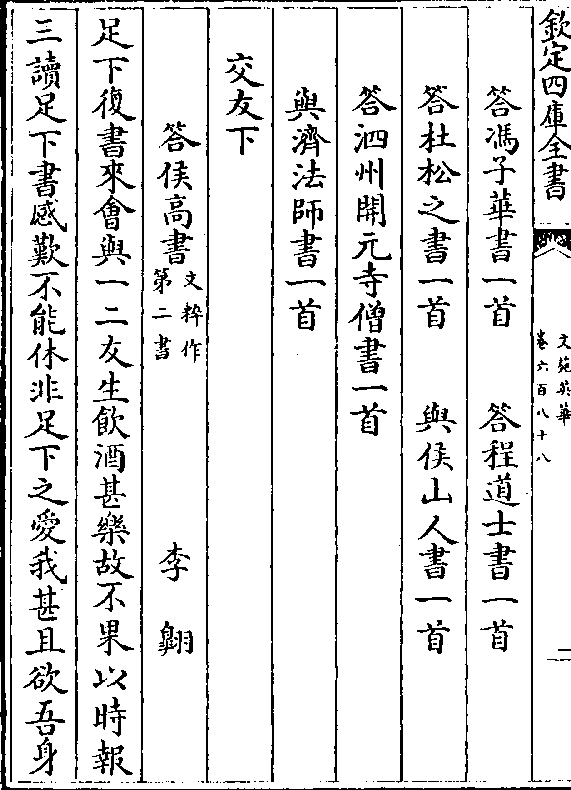 欽定四庫全書
文苑英華
卷六百八十八
二
答馮子華書一首　答程道士書一首
答杜松之書一首　與侯山人書一首
答泗州開元寺僧書一首
與濟法師書一首
交友下
答侯高書文粹作第二書　李翺
足下復書來會與一二友生飲酒甚樂故不果以時報
三讀足下書感歎不能休非足下之愛我甚且欲吾身